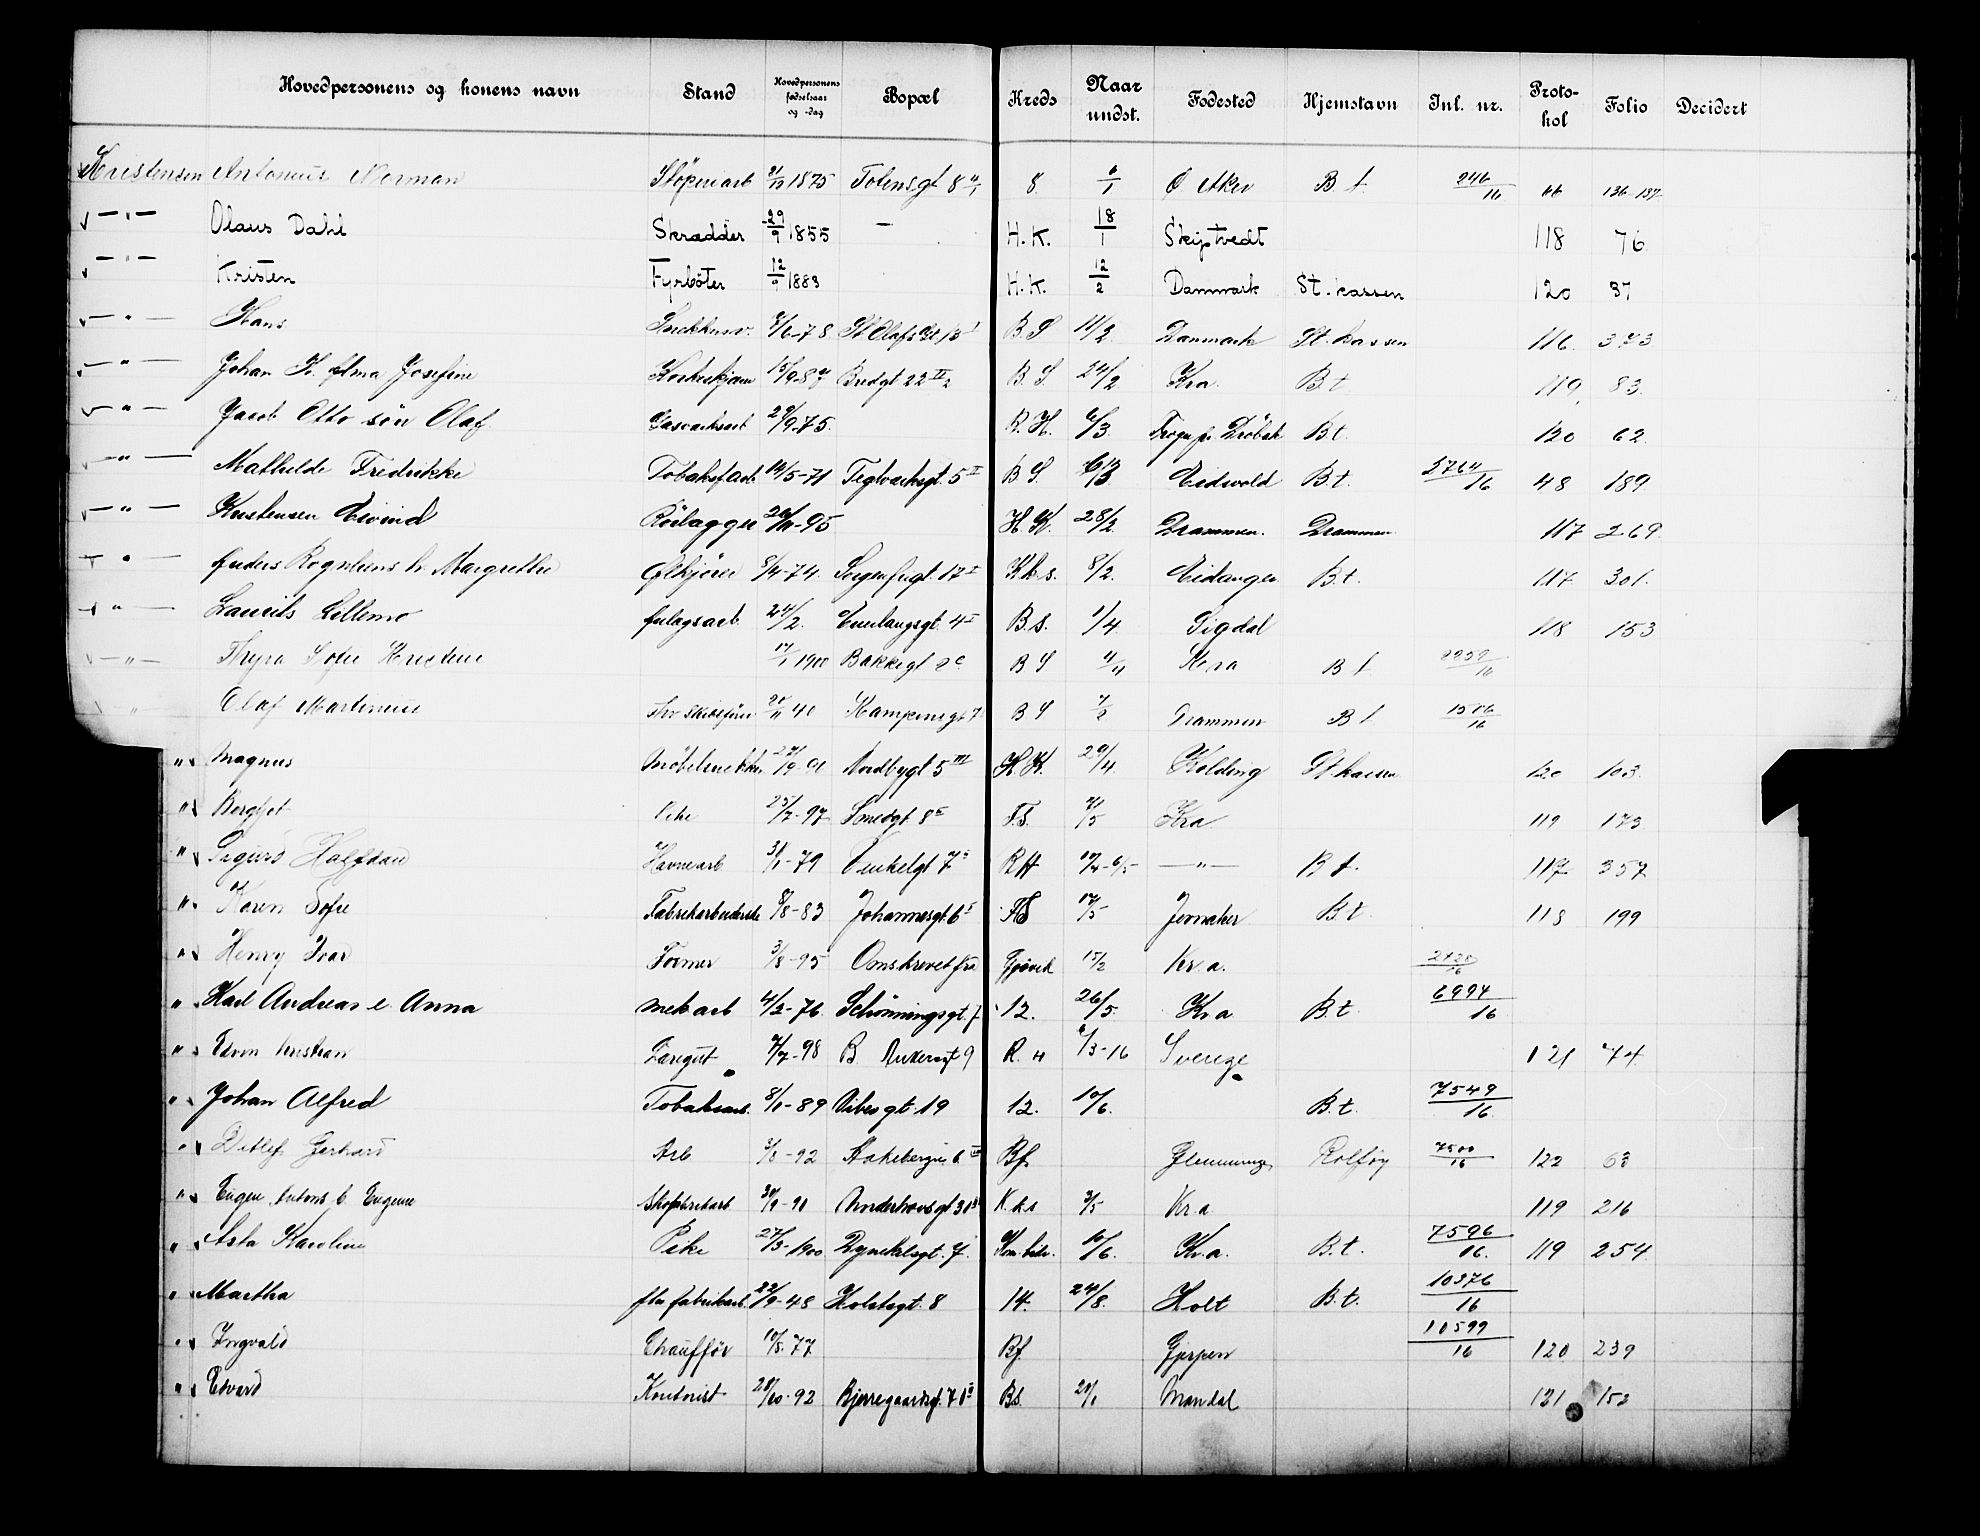 Hovedpersonens og konens navn Stand Hovedpersonens fødselsaar og -dag Bopæl Kreds Naar undst. Fødested Hjemstavn Inl. nr. Protokol Folio Decidert
Kristensen Antonius Norman Støperiarb 21/12 1875 Tolensgt 8 8 6/1 Ø Aker B.t. 246/16 66 136-137
— " — Olaus Dahl Skrædder 29/9 1855 — H.K. 18/1 Skiptvedt 118 76
— " — Kristen Fyrbøter 12/9 1883 H.K. 12/2 Danmark St.kassen 120 37
— " — Hans Snekkersv. 7/6-78 St Olafs Gt 13 B.S 11/2 Danmark St.kassen 116 373
— " — Johan K. Alma Josefine 15/9-87 Bredgt 22 II B.S. 24/2 Kra. B.t 119 83
— " — Jacob Otto søn Olaf Gasverksarb 29/9.75. R.H. 6/3 Frogn pr Drøbak B.t. 120 62
— " — Mathilde Fredrikke Tobaksfarb 14/5-71 Teglverksgt. 5 II B.S. Eidsvold B.t. 2764/16 48 189
— " — Kristensen Eivind Rørlægger 26/11-95 H.K. 28/2 Drammen. Drammen 117 269
— " — Anders Rognliens h. Margrethe Ølkjører 8/4-74. Sorgenfrigt. 17 I K.k.s. 8/2. Eidanger B.t. 117 301.
— " — Laurits Lillemo Anlagsarb. 24/2. Enerhaugsgt. 4 I B.S. 1/4 Sigdal 118 153
— " — Thyra Sofie Kristine 17/1 1900 Bakkegt 2c B S 4/11 Kra B t 2959/16
" Olaf Martinius 21/11 40 Kampensgt 7 B S 7/2 Drammen B t 1506/16
" Magnus Møbelsnekker 24/9-91 Nordbygt 5 III H.K. 29/4. Kolding St.kassen 120 103
" Borghet Pike 25/7-97 Smedgt. 8 II F.S. 71/5 Kra 119 173
" Sigurd Halfdan Havnearb 31/1-79 Vinkelgt 7 R H 10/4-6/5 — " — B t. 117 357
" Karen Sofie Fabrikarbeiderske 9/8-83 Johannesgt. 6 I F.S 17/5 Jevnaker B.t 118 199
" Henry Ivar Former 3/8-95 Omskrevet fra Gjøvik 15/2 Kr.a. 2828/16
" Karl Andreas e Anna mek arb 4/2-76. Schønningsgt. 7 12. 26/5. Kr.a B.t. 6994/16
" Edvin Kristian Laregut 7/7-98 B. Ankersgt 9 R.H 6/3-16 Sverige 121 74
" Johan Alfred Tobaksarb. 8/1-89 Vibesgt. 19 12. 10/6. B.t. 7549/16
" Detlef Gerhard Arb 3/8-92 Aakebergv. 6. III Bf. Glemminge Rolføy 7500/16 122 63
" Eugen Antons b. Eugenie Skofabrikarb 30/9-91 K.k.s 3/5 Kr.a 119 216
" Asta Karoline Pike 27/3-1900 Dynekilsgt. 7. Kom.beto. 16/6. Kr.a. B.t. 7596/16. 119 254
" Martha fhv fabrikarb. 22/9-48 Holstsgt. 8 14. 24/8. Holt B.t. 10376/16
" Ingvald Chauffør 10/8.77 Bf Gjerpen 10599/16 120 239
" Edvard Kontorist 28/10.92 Bjerregaardsgt. 70 II B.s. 20/1 Mandal 121 153